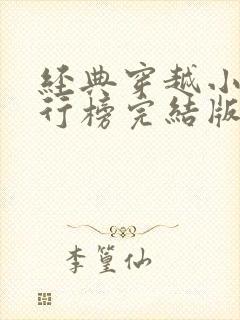 经典穿越小
行榜完结版
李篁仙